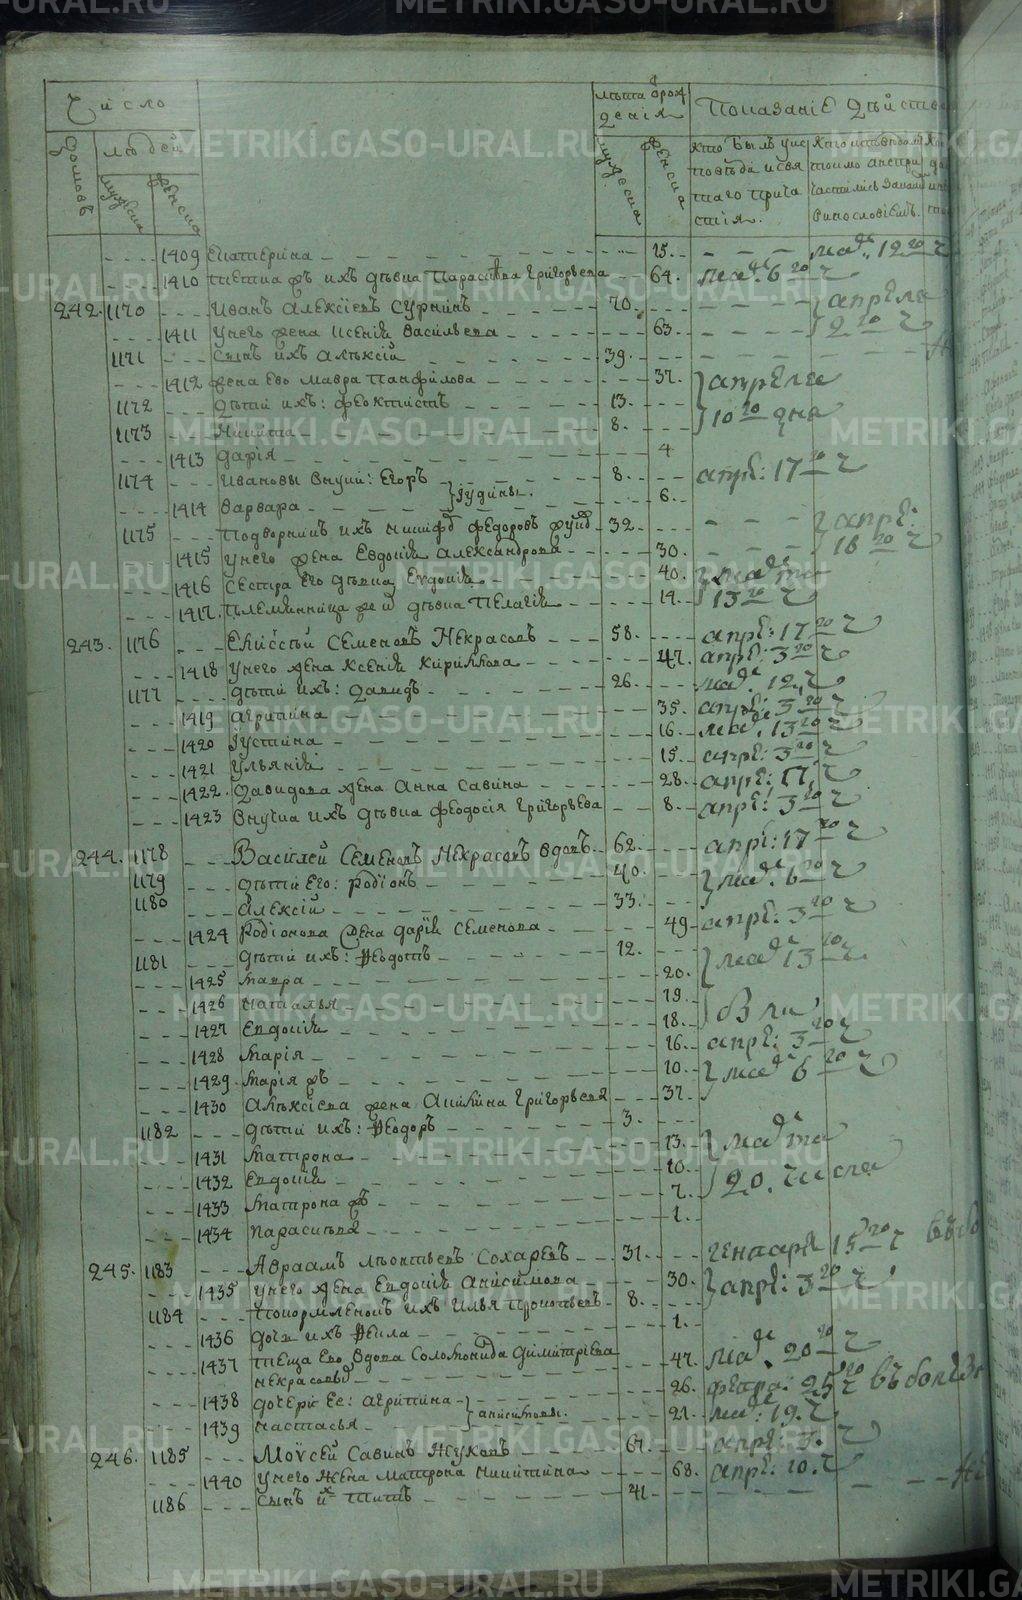 METRIKI.GASO-URAL.RU
Число
лѣта
рожденія
Показанїе дѣйства
домовъ
людей
мужеска
женска
мужеска
женска
Кто былъ у исповѣди и святаго причастія.
1409 Екатерина 15. маа: 12 го ч
1410 тетка ѳъ ихъ дѣвка Параскева Григорьева 64. маа: 6 го ч
242. 1170 Иванъ Алексіевъ Суринъ 70. апрелѧ
1411 У него жена Ксенія Васильева 63. 2 го ч
1171 Сынъ ихъ Алексій 39.
1412 жена Ево Мавра Панфилова 37. апрелѧ
1172 дѣти ихъ: Феоктистъ 13. 10 го дня
1173 Никита 8.
1413 дарія 4
1174 Ивановы внуки: Егоръ 8. апрѣ: 17 го ч
1414 Варвара 6.
1175 Подворникъ ихъ Федоровъ 32. апрѣ:
1415 У него жена Евдокія Александрова 30. 18 го ч
1416 Сестра Его дѣвка Евдокія 40. маа
1417. Племянница дѣвка Пелагія 14. 13 го ч
243. 1176 Елисей Семеновъ Некрасовъ 58. апрѣ: 17 го ч
1418 У него жена Ксенія Кирилова 47. апрѣ: 3 го ч
1177 дѣти ихъ: давидъ 26. маа: 12, ч
1419 агрипина 35. апрѣ: 3 го ч
1420 Іустина 16. маа: 13 го ч
1421 Ульянія 15. апрѣ: 3 го ч
1422. давидова жена Анна Савина 28. апрѣ: 17, ч
1423 внучка ихъ дѣвка Феодосія Григорьева 8. апрѣ: 3 го ч
244. 1178 Василей Семеновъ Некрасовъ вдовъ 62. апрѣ: 17 го ч
1179 дѣти Его: Родіонъ 40. маа: 6 го ч
1180 Алексій 33.
1424 Родіонова жена дарія Семенова 49. апрѣ: 3 го ч
1181 дѣти ихъ: Феодотъ 12. маа 13 го ч
1425 Мавра 20.
1426 Наталья 19.
1427 Евдокія 18.
1428 Марія 16. апрѣ: 3 го ч
1429. Марія ѳъ 10. маа 6 го ч
1430 Алексіева жена Акилина Григорьева 37.
1182 дѣти ихъ: Феодоръ 3.
1431 Матрона 13. маа
1432 Евдокія 10. 20. числа
1433 Матрона ѳъ 7.
1434 Параскева 1.
245. 1183 Авраамъ Леонтьевъ Сохаревъ 31. генваря 15 го ч
1435 У него жена Евдокія Анисимова 30. апрѣ: 3 го ч
1184 Покормленокъ ихъ Илья Прокопьевъ 8.
1436 дочь ихъ Фекла 1.
1437 теща Ево вдова Соломонида Димитріева Некрасовыхъ 47. маа 20 го ч
1438 дочери Ее: агрипина 26. февра: 25 го ч въ болѣз
1439 Настасья анисимовы. 21. маа: 19. ч
246. 1185 Моѵсей Савинъ Жуковъ 67. апрѣ: 3. ч
1440 У него жена Матрона Никитина 68. апрѣ: 10. ч
1186 Сынъ ихъ Титъ 41.